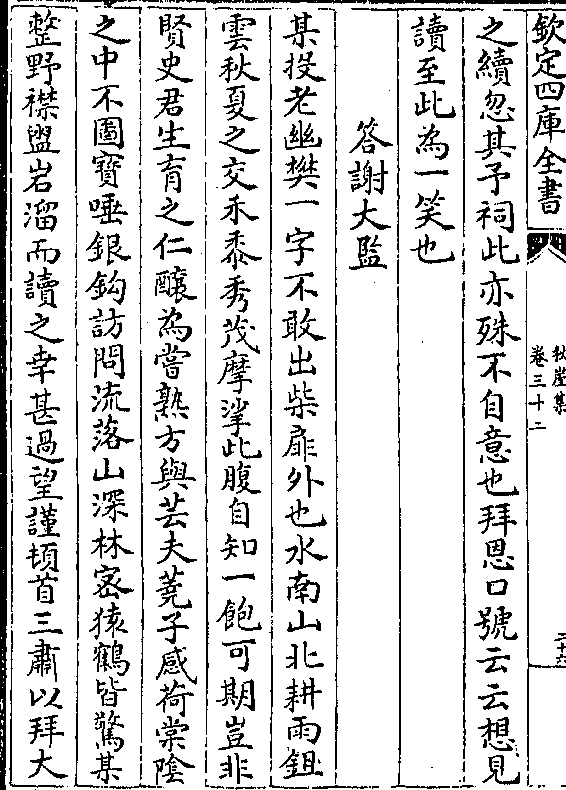 欽定四庫全書
秋崖集
卷三十二
二十六
之續忽其予祠此亦殊不自意也拜恩口號云云想見
讀至此為一笑也
答謝大監
某投老幽樊一字不敢出柴扉外也水南山北耕雨鉏
雲秋夏之交禾黍秀茂摩挲此腹自知一飽可期豈非
賢史君生育之仁釀為嘗熟方與芸夫蕘子感荷棠陰
之中不圖寶唾銀鈎訪問流落山深林宻猿鶴皆驚某
整野襟盥岩溜而讀之幸甚過望謹頓首三肅以拜大